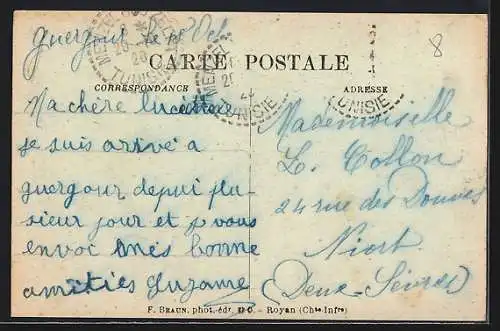 Guergour le 18 Oct
8
CARTE POSTALE
CORRESPONDANCE
ADRESSE
TUNISIE
TUNISIE
TUNISIE
Ma chère Lucette
je suis arivé a
guergour depui plu-
sieur jour et je vous
envoi mes bonne
amitiés Suzanne
Mademoiselle
L. Collon
24 rue des Douves
Niort
(Deux-Sèvres)
F. BRAUN, phot.-édr - Royan (Chte Infre)